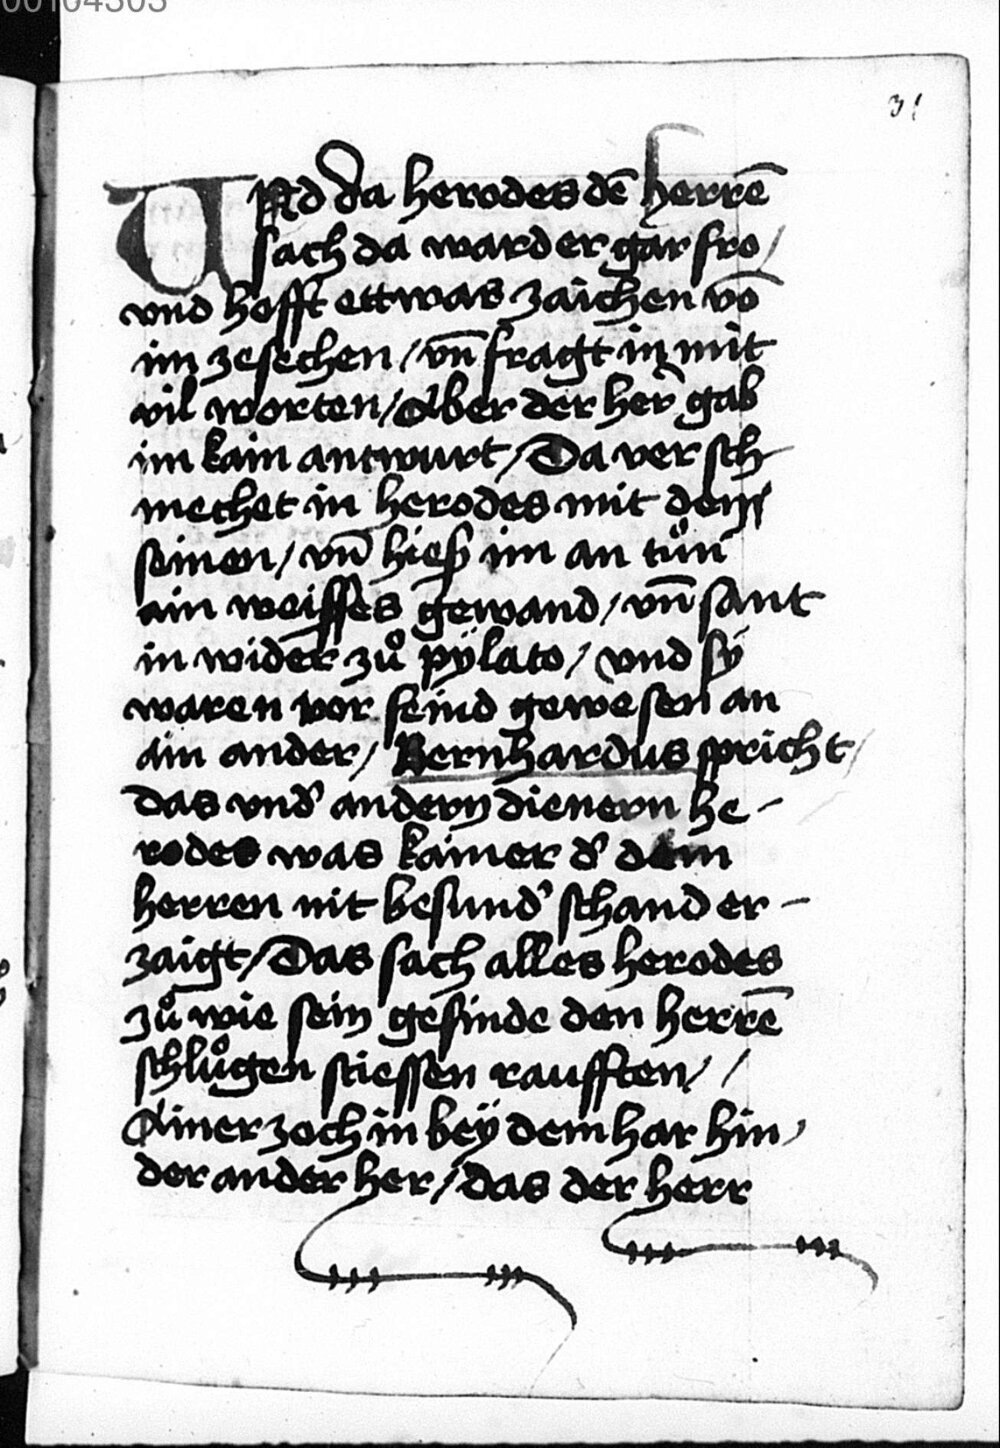 00104303
31
VNd da herodes dē herrē
sach da ward er gar fro /
vnd hofft ettwas zaichen vō
im zesechen / vn̄ fragt in mit
vil worten / Aber der her̄ gab
im kain antwurt / Da versch-
mechet in herodes mit dem
seinen / vn̄ hieß im an tůn
ain weisses gewand / vn̄ sant
in wider zů pÿlato / vnd sÿ
waren vor feind gewesen an
ain ander / Bernhardus spricht /
das vnd' andern dienern he-
rodes was kainer d' dem
herren nit besund' schand er-
zaigt / Das sach alles herodes
zů wie sein gesinde den herrē
schlůgen stiessen raufften / /
Ainer zoch in beÿ dem har hin /
der ander her / das der herr